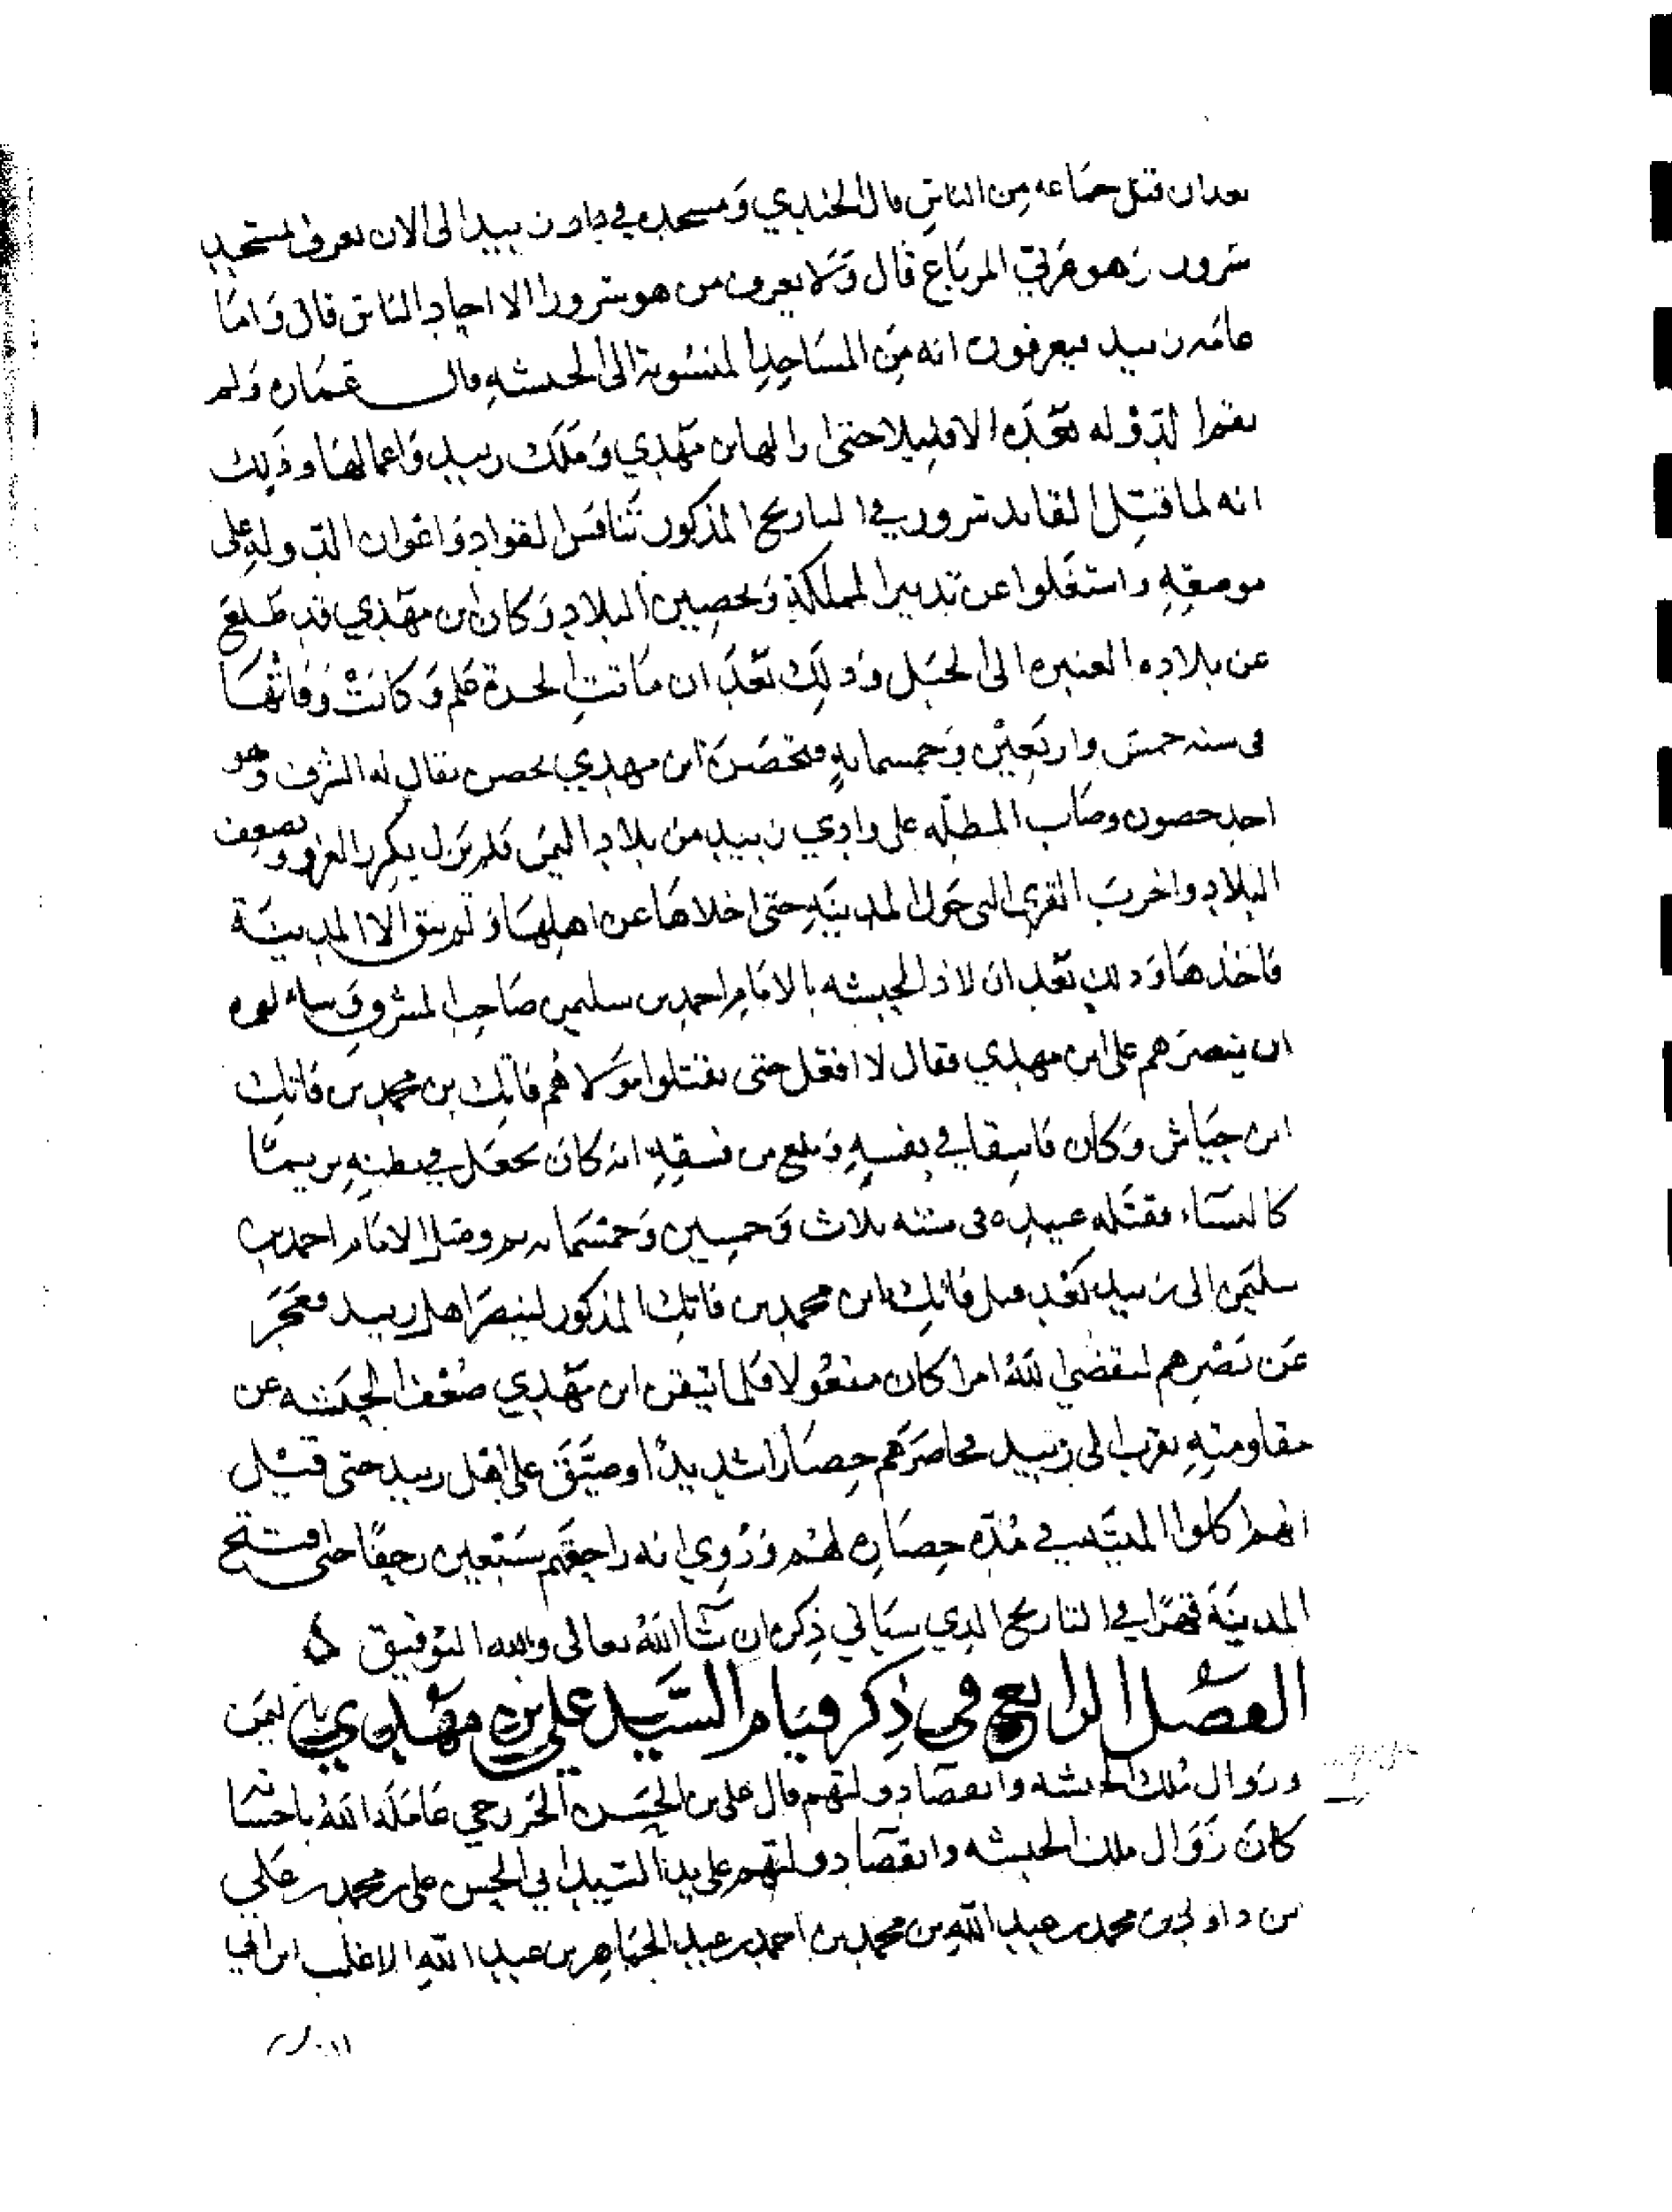 بعد ان قتل جماعه من الناس قال الجندي ومسجده في زبيد الى الان يعرف بمسجد
سرور وهو غربي المرباع قال ولا يعرف من هو سرور الا احاد الناس قال واما
عامه زبيد فيعرفون انه من المساجد المنسوبة الى الحبشه قال عماره ولم
يقم الدوله بعده الا قليلا حتى ازالها ابن مهدي وملك زبيد واعمالها وذلك
انه لما قتل القايد سرور في التاريخ المذكور تنافس القواد واعوان الدوله على
موضعه واشتغلوا عن تدبير المملكة وتحصين البلاد وكان ابن مهدي قد طلع
عن بلاده العنبره الى الجبل وذلك بعد ان ماتت الحرة علم وكانت وفاتها
فى سنه خمس واربعين وخمسمايه فتحصن ابن مهدي بحصن يقال له الشرف وهو
احد حصون وصاب المطله على وادي زبيد من بلاد اليمن فلم يزل يكرر الغزو ويضعف
البلاد واخرب القرى التى حول المدينه حتى اخلاها عن اهلها ولم يبق الا المدينة
فاخذها وذلك بعد ان لاذ الحبشه بالامام احمد بن سليمن صاحب المشرق وسالوه
ان ينصرهم على ابن مهدي فقال لا افعل حتى تقتلوا مولاكم فاتك بن محمد بن فاتك
ابن جياش وكان فاسقا في نفسه وبلغ من فسقه انه كان يجعل في بطنه بريما
كالنساء فقتله عبيده فى سنه ثلاث وخمسين وخمسمايه ووصل الامام احمد بن
سليمن الى زبيد بعد قتل فاتك ابن محمد بن فاتك المذكور لينصر اهل زبيد فعجز
عن نصرهم ليقضي الله امرا كان مفعولا فلما تيقن ابن مهدي ضعف الحبشه عن
مقاومته تقرب الى زبيد فحاصرهم حصارا شديدا وضيق على اهل زبيد حتى قيل
انهم اكلوا الميته في مدة حصاره لهم وروي انه زاحفهم سبعين زحفا حتى افتتح
المدينة قهرا في التاريخ الذي سياتي ذكره ان شا الله تعالى وبالله التوفيق
الفصل الرابع فى ذكر قيام السيد على بن مهدي باليمن
وزوال ملك الحبشه وانقضا دولتهم قال على بن الحسن الخزرجي عامله الله باحسانه
كان زوال ملك الحبشه وانقضا دولتهم على يد السيد ابي الحسن على بن محمد بن علي
بن داود بن محمد بن عبد الله بن محمد بن احمد بن عبد الله الاغلب ابن ابي